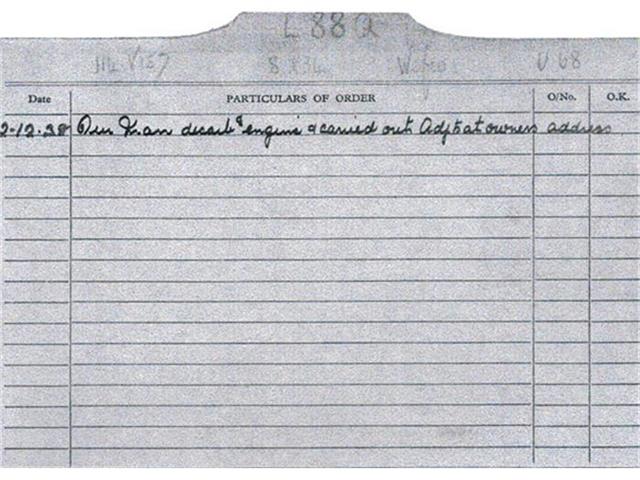 L 88 Q
U 68
Date PARTICULARS OF ORDER O/No. O.K.
2-12-38 Our Man decarbd engine & carried out Adjts at owners address